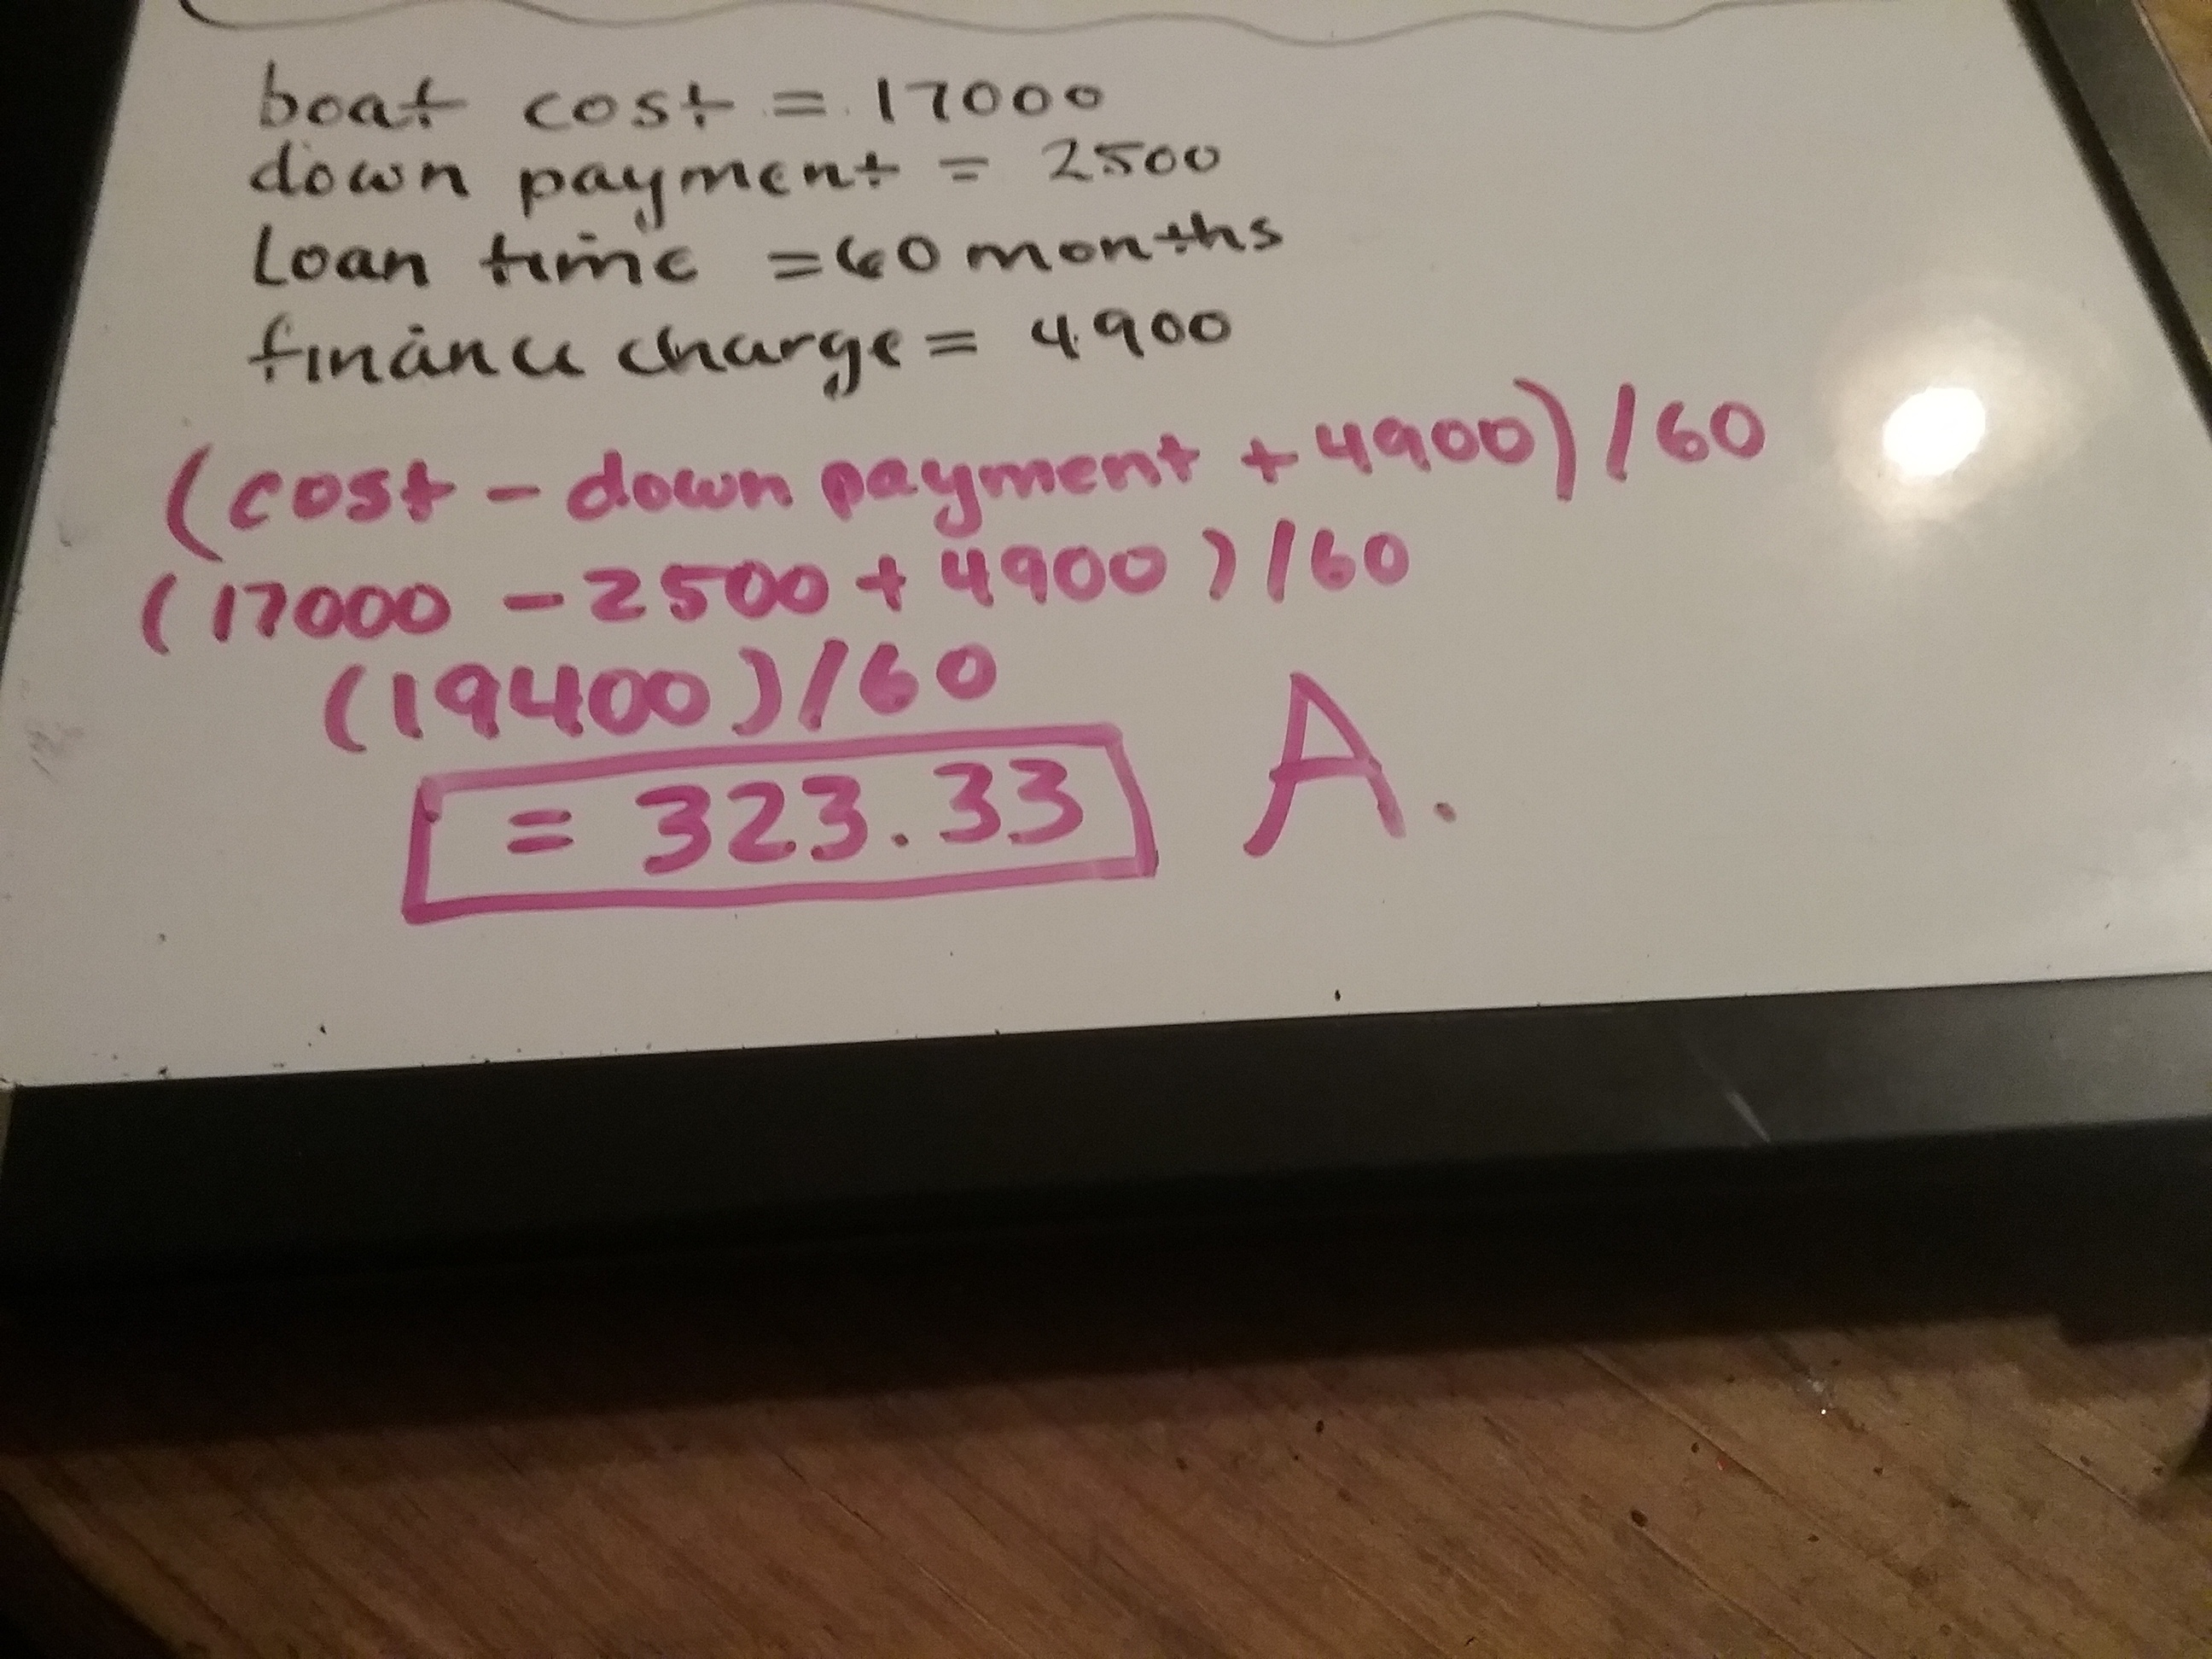 boat cost = 17000
down payment = 2500
Loan time = 60 months
finance charge = 4900
(cost - down payment + 4900) / 60
(17000 - 2500 + 4900) / 60
(19400) / 60
= 323.33 A.